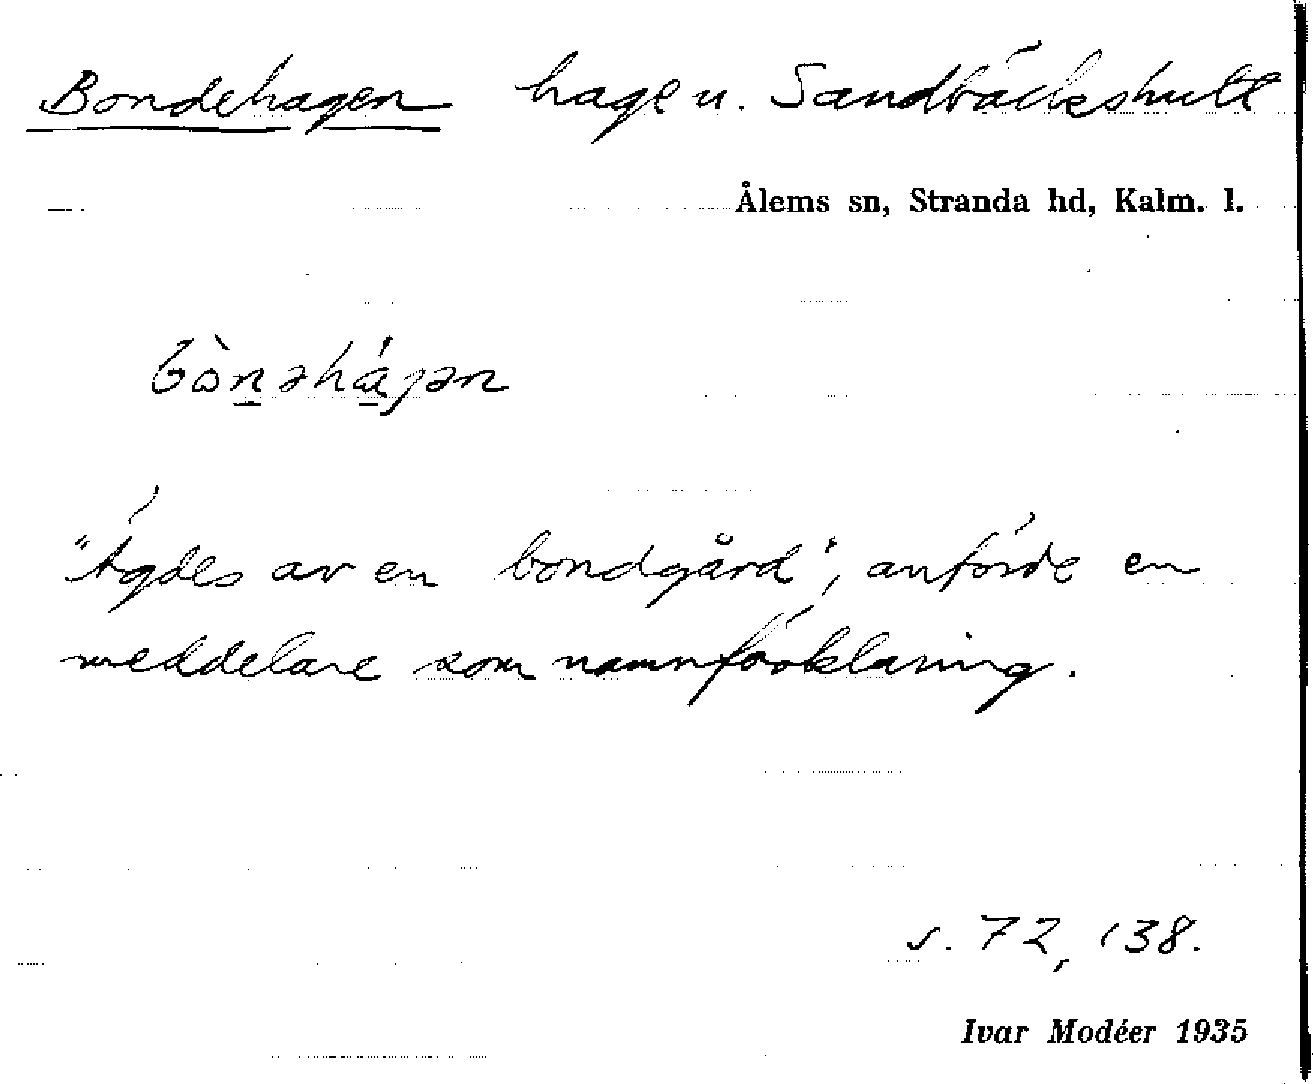 Bondehagen hage u. Sandbäckshult
Ålems sn, Stranda hd, Kalm. l.
bòn̲əhá̲gən
"Ägdes av en bondgård", anförde en
meddelare som namnförklaring.
s. 72, 138.
Ivar Modéer 1935